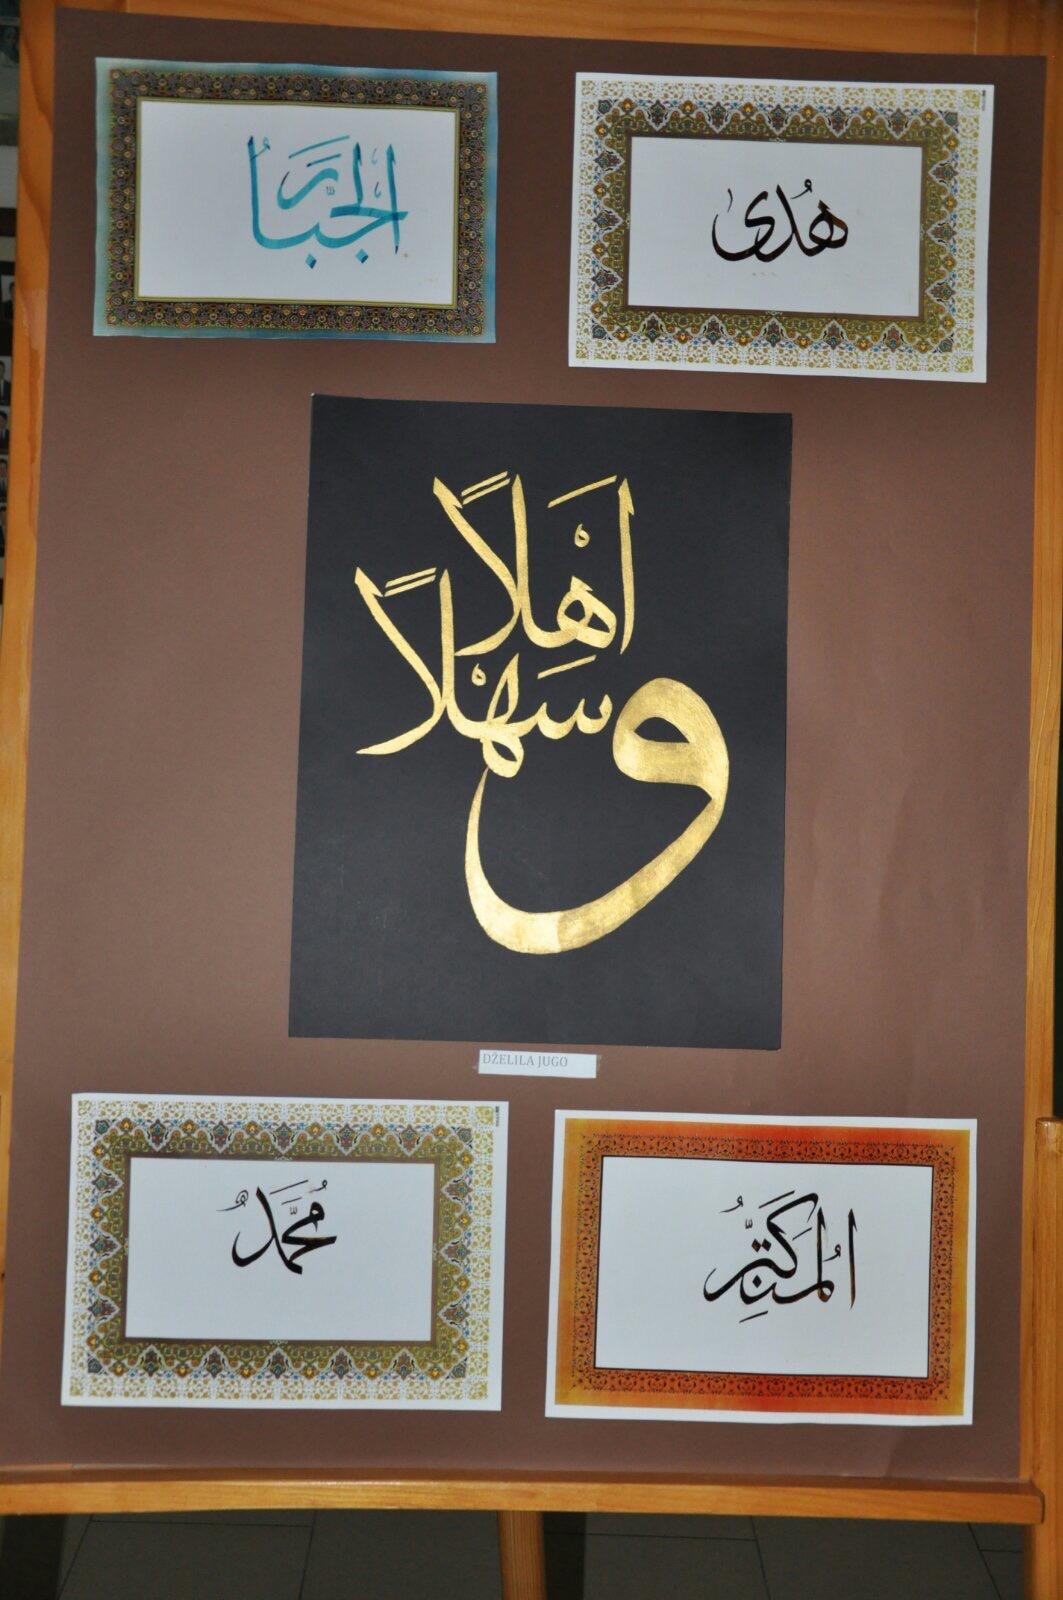 الجبَّارُ
هُدى
اَهَلاً
وَسَهلاً
DŽELILA JUGO
مُحَمَّدٌ
المُتَكَبِّرُ